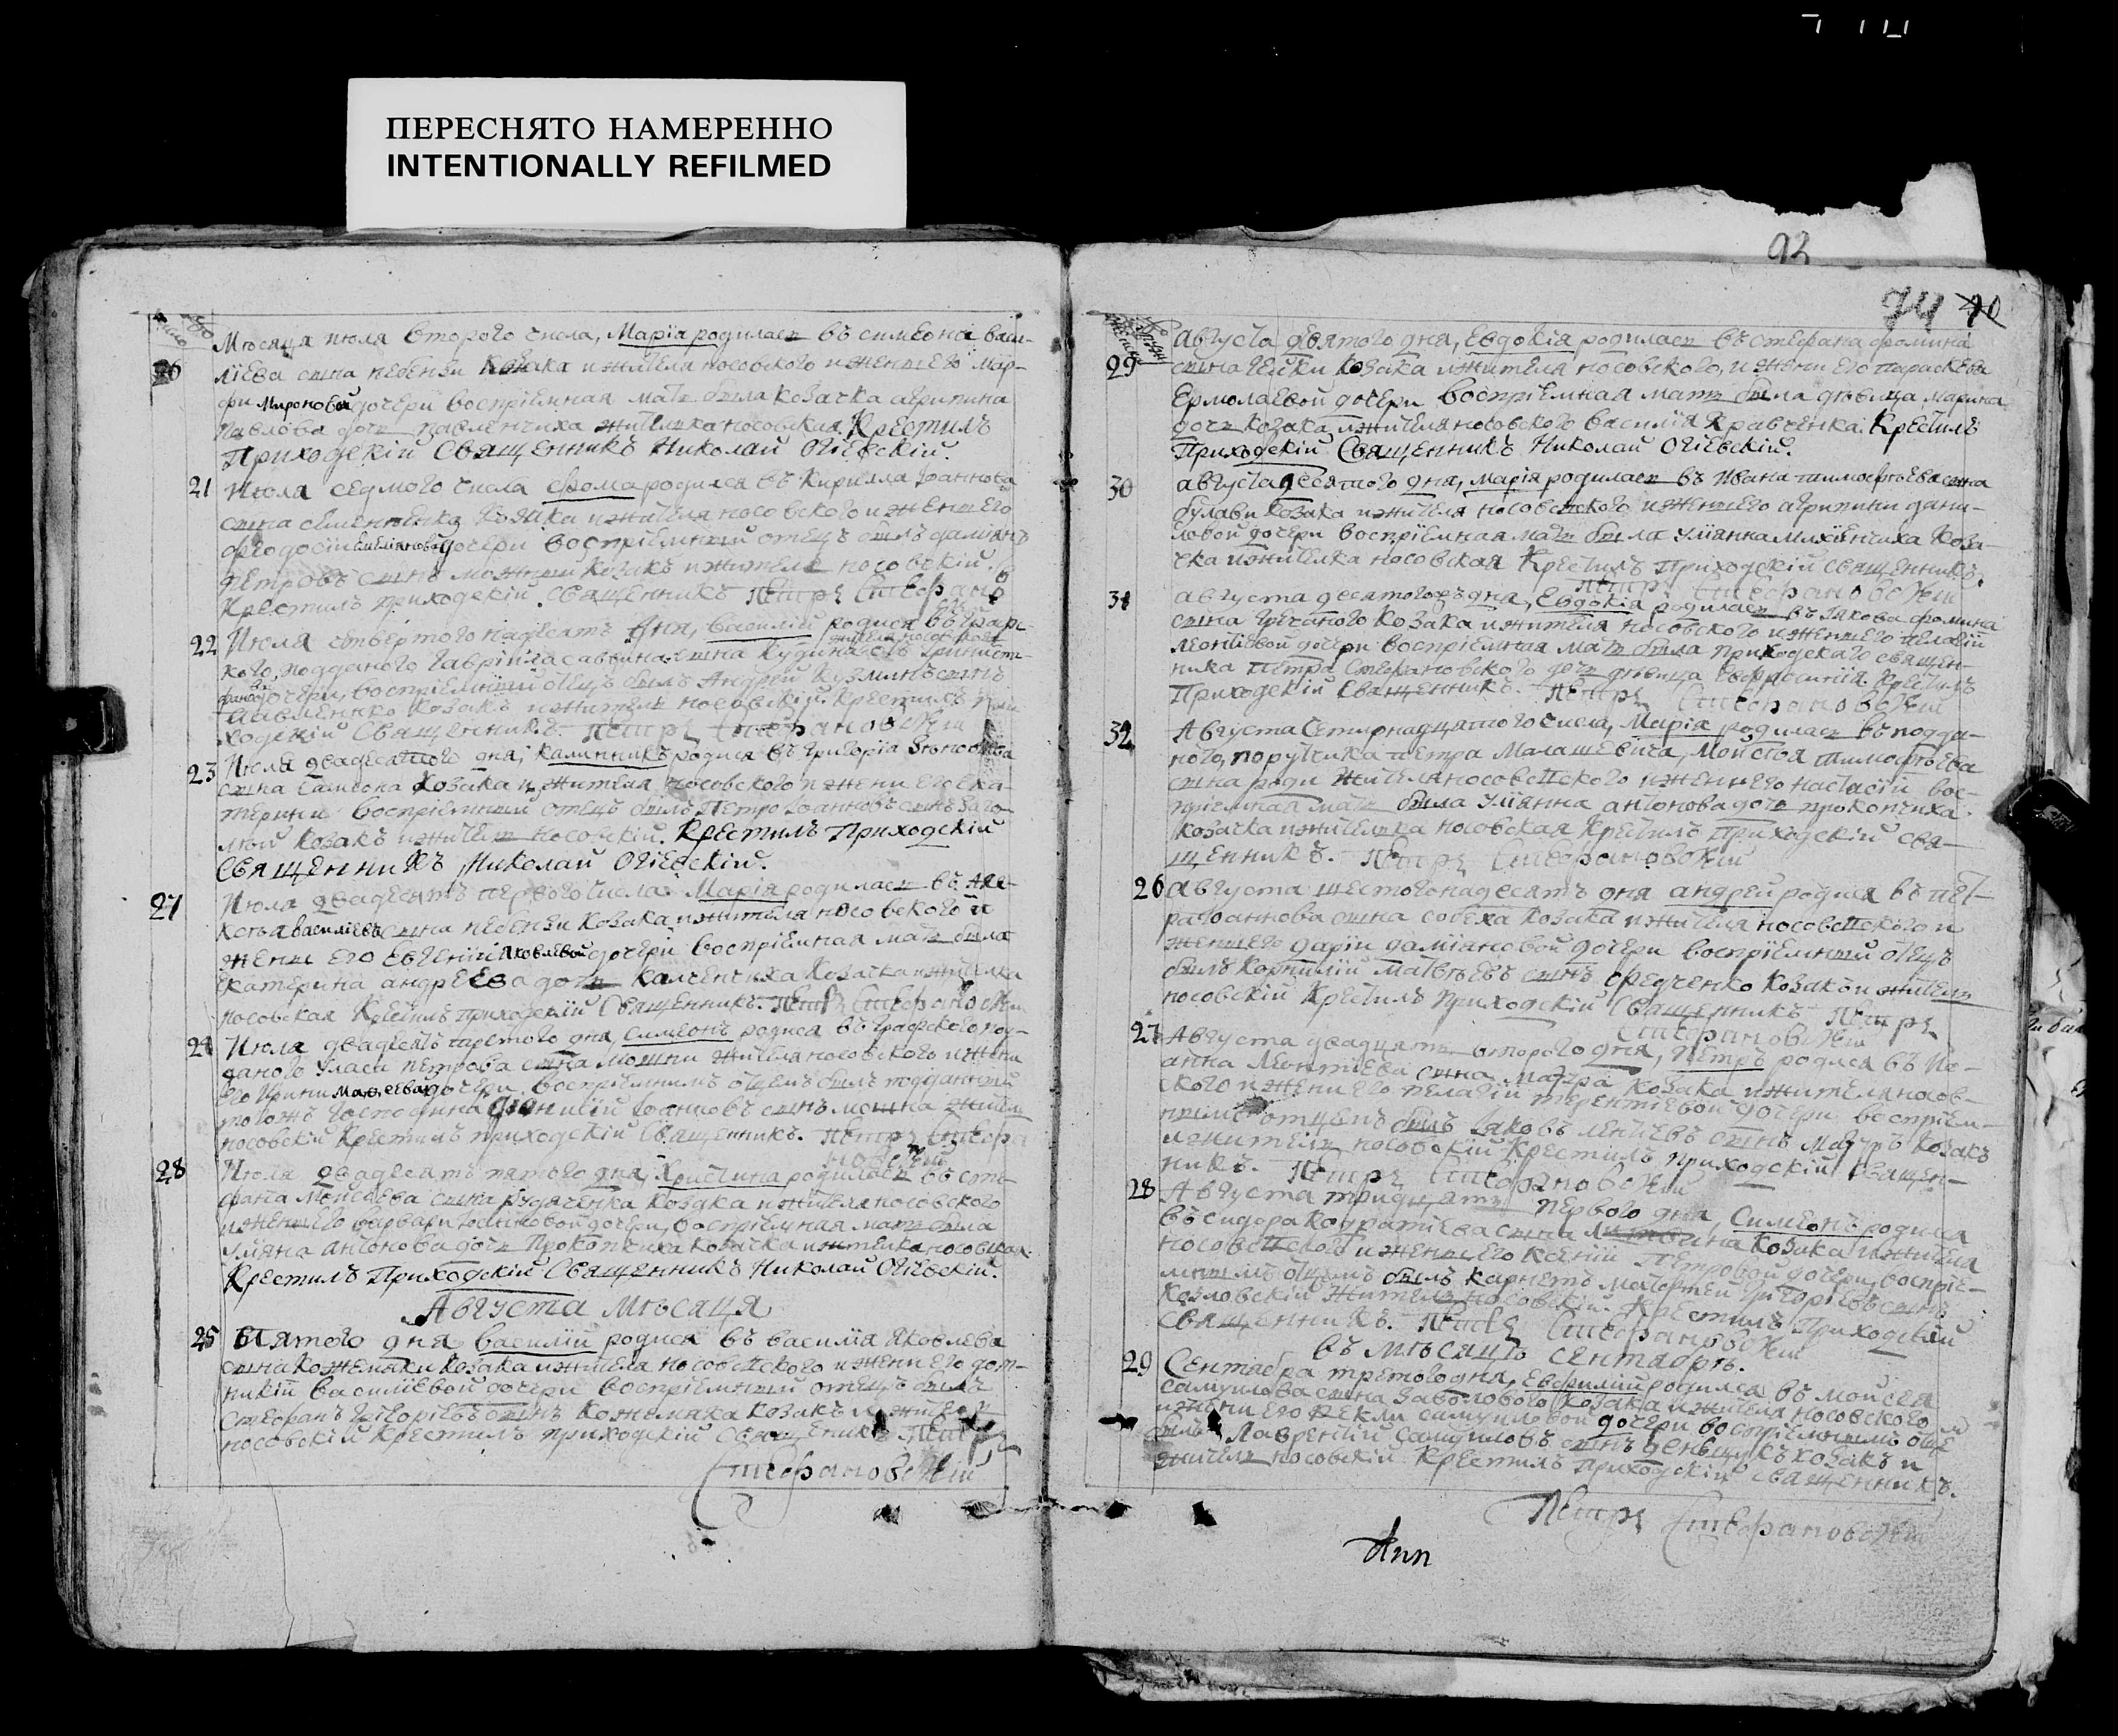 ПЕРЕСНЯТО НАМЕРЕННО
INTENTIONALLY REFILMED
Мѣсяца июля второго числа, Марія родилась въ симеона васи-
26 ліева сына небензи козака и жителя носовского и жены его мар-
фи Мироновой дочери воспріемная мать была козачка агрипина
Павлова дочь павленчиха жителка носовская Крестилъ
Приходскій Священникъ Николай Огіевскій.
21 Июля седмого числа Фома родился въ Кирилла Іоаннова
сына козака и жителя носовского и жены его
феодосіи дочери воспріемный отецъ былъ даміянъ
петровъ сынъ козакъ и житель носовскій.
Крестилъ приходскій священникъ Петръ Стефановскій
22 Июля четвертого надесять дня, василій родися въ
кого, подданого гавріила саввина сына
дочери, воспріемный отецъ былъ Андрей Кузминъ сынъ
козакъ и житель носовскій. Крестилъ при-
ходскій Священникъ. Петръ Стефановскій
23 Июля двадесятого дня, каллиникъ родися въ григорія
сына козака и жителя носовского и жени его ека-
терини воспріемный отецъ былъ Петро Іоанновъ сынъ
козакъ и житель носовскій. Крестилъ Приходскій
Священникъ Николай Огіевскій.
27 Июля двадесять первого числа Марія родилась въ але-
ксѣя василіева сына небензи козака и жителя носовского и
жены его Евгеніи Яковлевой дочери воспріемная мать была
Екатерина андреева дочь калченчиха козачка и жителка
носовская Крестилъ приходскій Священникъ. Петръ Стефановскій
Июля двадесять третого дня, симеонъ родися въ графского под-
даного уласа петрова сына мошни жителя носовского и жени
его Ирини дочери. воспріемнимъ отцемъ былъ подданный
тогожъ господина Діонисій Іоанновъ сынъ мошна житель
носовскій Крестилъ приходскій Священникъ. Петръ Стефа
новскій
28 Июля двадесять пятого дня, Христина родилась въ сте-
фана Мойсеева сына рудяченка козака и жителя носовского
и жены его варвари дочери, воспріемная мать была
уліяна антонова дочь Прокопчиха козачка и жителка носовская.
Крестилъ Приходскій Священникъ Николай Огіевскій.
Августа Мѣсяця
25 Пятого дня василій родися въ василія яковлева
сына кожемяки козака и жителя носовского и жени его дом-
никіи василіевой дочери воспріемный отецъ былъ
Стефанъ григоріевъ сынъ кожемяка козакъ и житель
носовскій Крестилъ приходскій священикъ Петръ
Стефановскій
93
74 70
Августа девятого дня, Евдокія родилась въ стефана фомина
29 сына козака и жителя носовского, и жени его параскеви
Ермолаевой дочери воспріемная мать была дѣвица марина
дочь козака и жителя носовского василія Кравченка. Крестилъ
Приходскій Священникъ Николай Огіевскій.
30 августа десятого дня, марія родилась въ Ивана тимофѣева сына
булави козака и жителя носовского и жены его агрипини дани-
ловой дочери воспріемная мать была уліянна Михіенчиха коза-
чка и жителка носовская Крестилъ Приходскій священникъ.
Петръ Стефановскій
31 августа десятогожъ дня, Евдокія родилась въ Іакова фомина
сына гречаного козака и жителя носовского и жены его пелагіи
леонтіевой дочери воспріемная мать была приходскаго священ-
ника Петра Стефановского дочь дѣвица Евфросинія. Крестилъ
Приходскій Священникъ. Петръ Стефановскій
32 Августа четирнадцатого числа, Марія родилась въ подда-
ного, поручика петра Малашевича, Мойсея тимофѣева
сына жителя носовского и жены его настасіи вос-
пріемная мать была уліянна антонова дочь прокопчиха
козачка и жителка носовская Крестилъ Приходскій свя-
щенникъ. Петръ Стефановскій
26 Августа шестогонадесять дня андрей родися въ пет-
ра Іоаннова сына собеха козака и жителя носовского и
жены его даріи даміановой дочери воспріемный отецъ
былъ Корнилій Матвѣевъ сынъ Федченко козакъ и житель
носовскій Крестилъ приходскій Священникъ Петръ
Стефановскій
27 Августа двадцять второго дня, Петръ родися въ Іо-
анна Леонтіева сына Мазура козака и жителя носов-
ского и жени его пелагіи терентіевой дочери воспріем-
нымъ отцемъ былъ Іаковъ сынъ Мазуръ козакъ
и житель носовскій Крестилъ приходскій Священ-
никъ. Петръ Стефановскій
28 Августа тридцять первого дня, Симеонъ родися
въ сидора кондратіева сына козака и жителя
носовского и жены его Ксеніи Петровой дочери, воспріе-
мнымъ отцемъ былъ григоріевъ сынъ
Козловскій житель носовскій. Крестилъ Приходскій
Священникъ. Петръ Стефановскій
въ Мѣсяцѣ сентябрѣ.
29 Сентября третого дня, Евфимій родился въ мойсея
самуилова сына заболового козака и жителя носовского
и жени его самуиловой дочери воспріемнымъ отцем
былъ Лаврентій Самуиловъ сынъ козакъ и
житель носовскій Крестилъ Приходскій священникъ.
Петръ Стефановскій